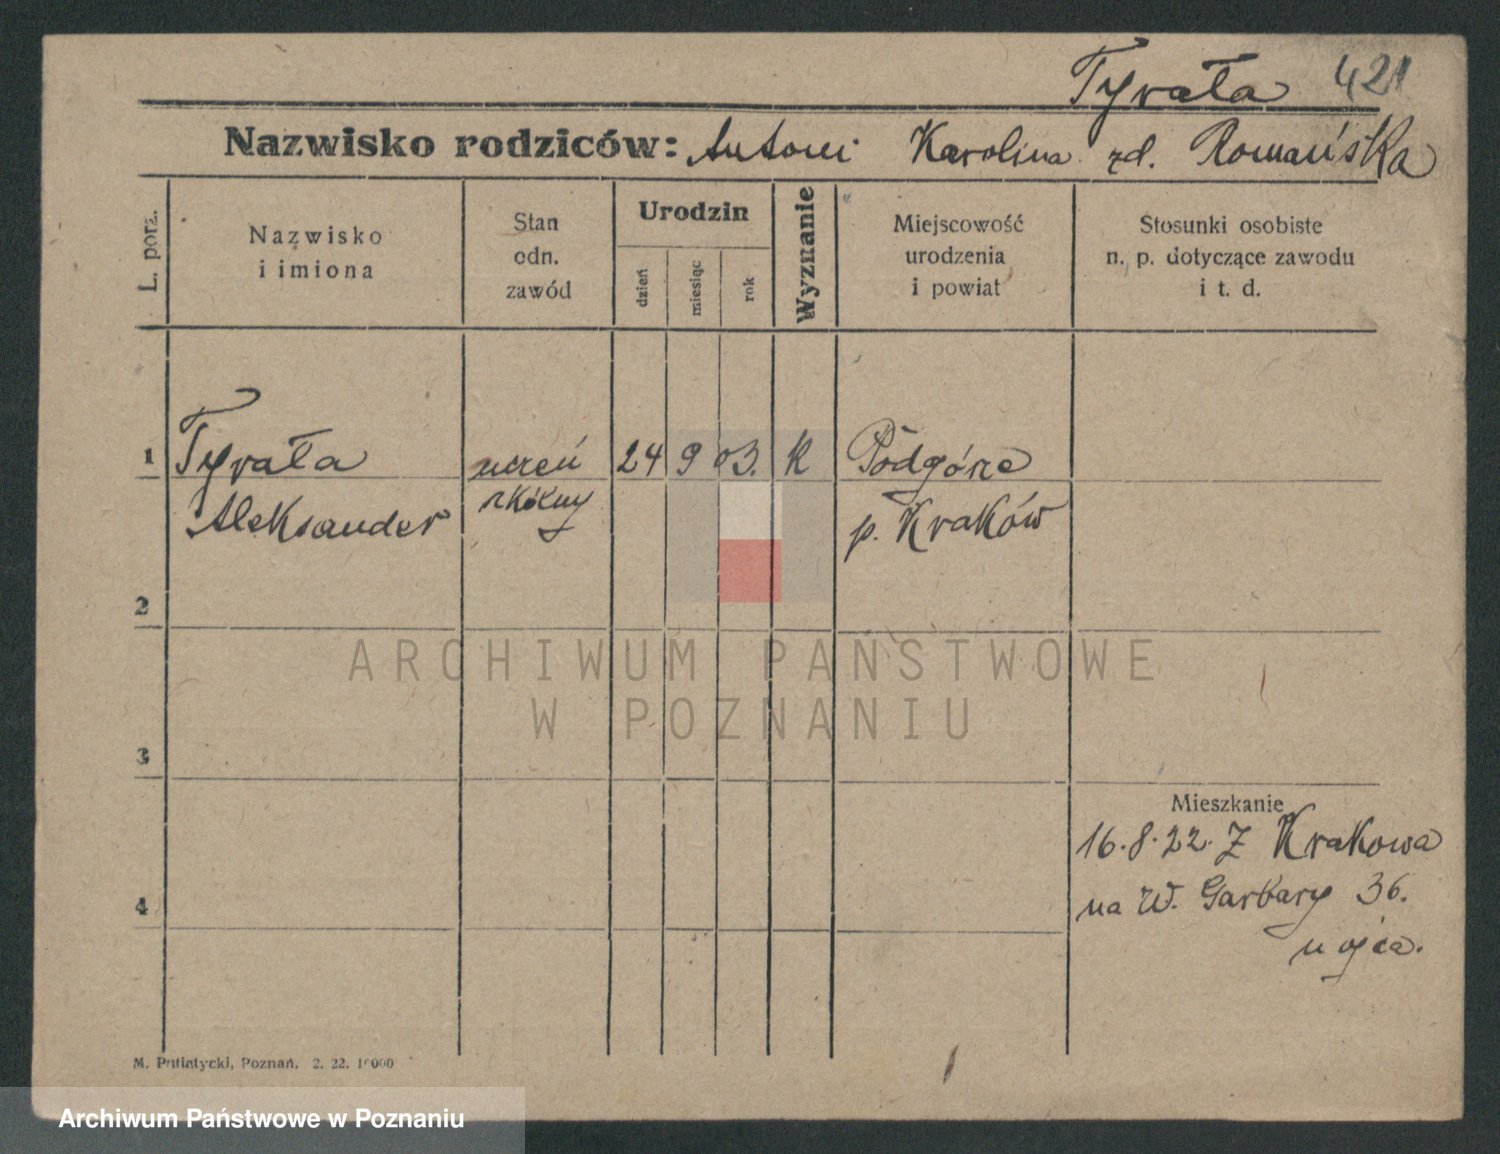 Tyrała 421
Nazwisko rodziców: Antoni Karolina zd. Romańska
L. porz.
Nazwisko
i imiona
Stan
odn.
zawód
Urodzin
dzień
miesiąc
rok
Wyznanie
Miejscowość
urodzenia
i powiat
Stosunki osobiste
n. p. dotyczące zawodu
i t. d.
1 Tyrała uczeń 24 9 03. K Podgórze
Aleksander szkolny p. Kraków
2
3
4
Mieszkanie
16.8.22. Z Krakowa
na W. Garbary 36.
u ojca.
M. Putiatycki, Poznań. 2. 22. 10000
ARCHIWUM PAŃSTWOWE
W POZNANIU
Archiwum Państwowe w Poznaniu